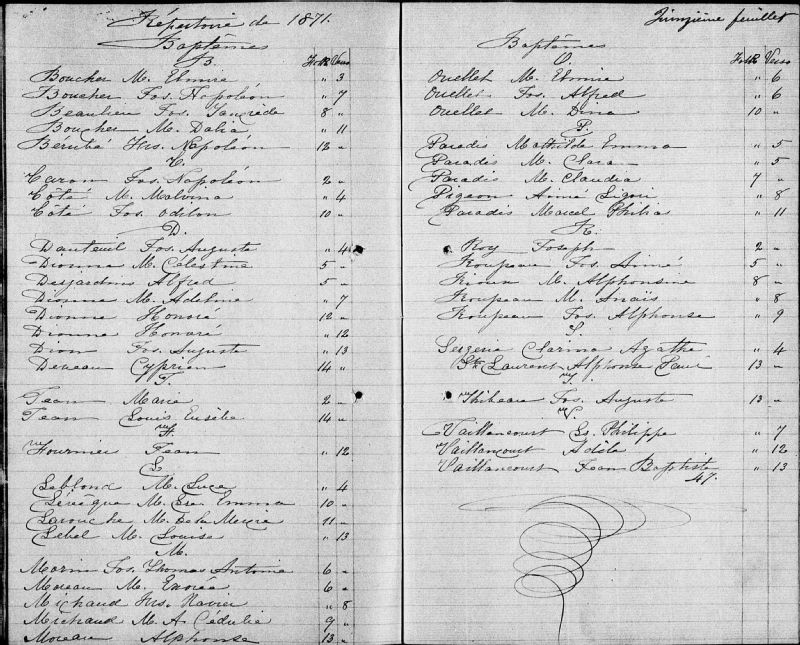 Répertoire de 1871.
Baptêmes
B. Folio Verso
Boucher M. Elmire " 3
Boucher Jos. Napoléon " 7
Beaulieu Jos. Tancrède 8 "
Boucher M. Dalia " 11
Bérubé Frs. Napoléon 12 "
C.
Caron Jos. Napoléon 2 "
Côté M. Malvina " 4
Côté Jos. Odilon 10 "
D.
Dauteuil Jos. Auguste " 4
Dionne M. Célestine 5 "
Desjardins Alfred 5 "
Dionne M. Adeline " 7
Dionne Honoré 12 "
Dionne Honoré " 12
Dion Jos. Auguste " 13
Deveau Cyprien 14 "
J.
Jean Marie 2 "
Jean Louis Eusèbe 14 "
F.
Fournier Jean " 12
L.
Leblond M. Luce " 4
Lévêque M. Emma 10 "
Larouche M. De la Mercie 11 "
Lebel M. Louise " 13
M.
Morin Jos. Thomas Antoine 6 "
Moreau M. 6 "
Michaud Frs. Xavier " 8
Michaud M. A. Cédulie 9 "
Moreau Alphonse 13 "
feuillet
Baptêmes
O. Folio Verso
Ouellet M. Elmire " 6
Ouellet Jos. Alfred " 6
Ouellet M. Dina 10 "
P.
Paradis Mathilde Emma " 5
Paradis M. Clara " 5
Paradis M. Claudia 7 "
Pigeon Aimé Ligori " 8
Paradis Marcel Philias " 11
R.
Roy Joseph 2 "
Roupeau Jos. Aimé 5 "
Rioux M. Alphonsine 8 "
Roupeau M. Anaïs " 8
Roupeau Jos. Alphonse " 9
S.
Clarina Agathe " 4
St. Laurent Alphonse 13 "
T.
Thibeau Jos. Auguste 13 "
V.
Vaillancourt Ls. Philippe " 7
Vaillancourt Adèle " 12
Vaillancourt Jean Baptiste " 13
47.